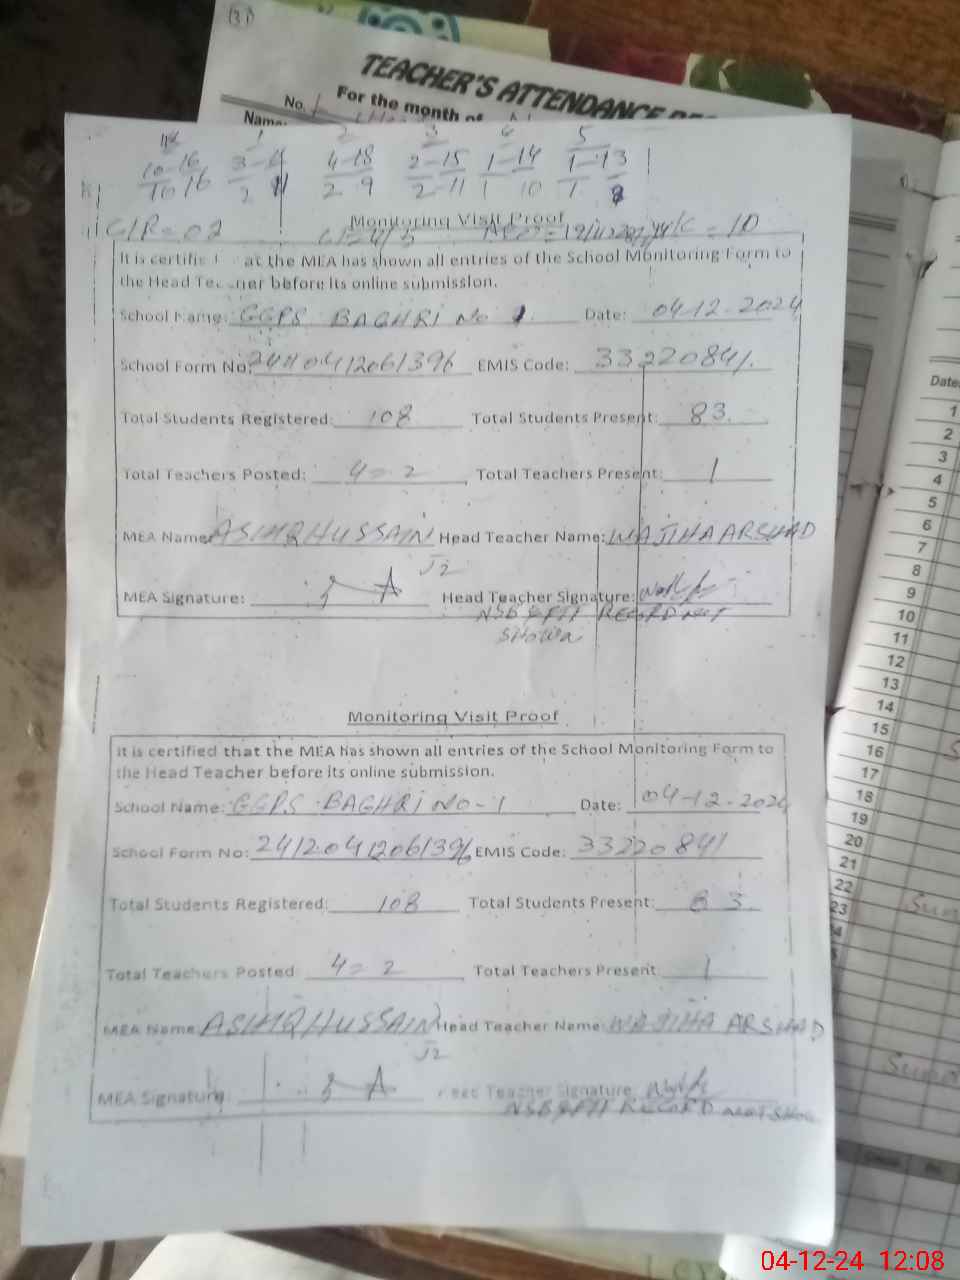 (31)
TEACHER'S ATTENDANCE
No.
For the month of
Name
1 2 3 4 5
10-16 3-4 4-18 2-15 1-14 1-13
10 16 2 11 2 9 2-11 1 10 1 8
C/R=02
Monitoring Visit Proof
= 10
It is certifie at the MEA has shown all entries of the School Monitoring Form to
the Head Teacher before its online submission.
School Name: GGPS BAGHRI No 1. Date: 04-12-2024
School Form No: EMIS Code: 33220841.
Total Students Registered: 108 Total Students Present: 83.
Total Teachers Posted: 4=2 Total Teachers Present: 1
MEA Name: ASIHQ HUSSAIN Head Teacher Name: WAJIHA ARSHAD
J2
MEA Signature: Head Teacher Signature:
NSB & FTF RECORD NOT
SHOWN
Monitoring Visit Proof
It is certified that the MEA has shown all entries of the School Monitoring Form to
the Head Teacher before its online submission.
School Name: GGPS BAGHRI No-1 Date: 04-12-2024
School Form No: 24120412061396 EMIS Code: 33220841
Total Students Registered: 108 Total Students Present: 83.
Total Teachers Posted 4=2 Total Teachers Present 1
MEA Name ASIHQ HUSSAIN Head Teacher Name WAJIHA ARSHAD
J2
MEA Signature: Teacher Signature:
NSB & FTF RECORD NOT SHOW
Date
1
2
3
4
5
6
7
8
9
10
11
12
13
14
15
16
17
18
19
20
21
22
23
Sun
04-12-24 12:08